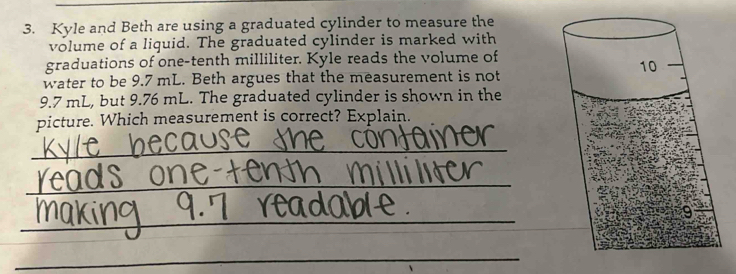 3. Kyle and Beth are using a graduated cylinder to measure the
volume of a liquid. The graduated cylinder is marked with
graduations of one-tenth milliliter. Kyle reads the volume of
water to be 9.7 mL. Beth argues that the measurement is not
9.7 mL, but 9.76 mL. The graduated cylinder is shown in the
picture. Which measurement is correct? Explain.
Kyle because the container
reads one-tenth milliliter
making 9.7 readable.
10
9